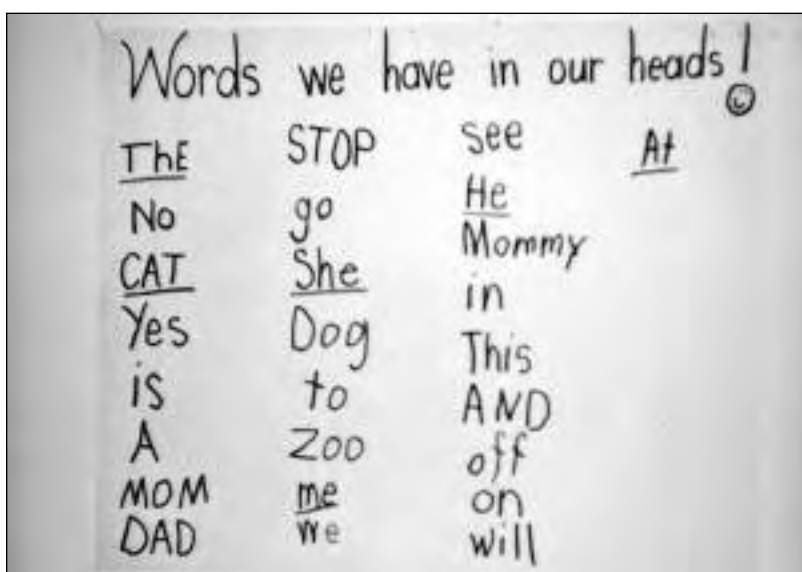 Words we have in our heads!
ThE
No
CAT
Yes
is
A
MOM
DAD
STOP
go
She
Dog
to
Zoo
me
we
see
He
Mommy
in
This
AND
off
on
will
At